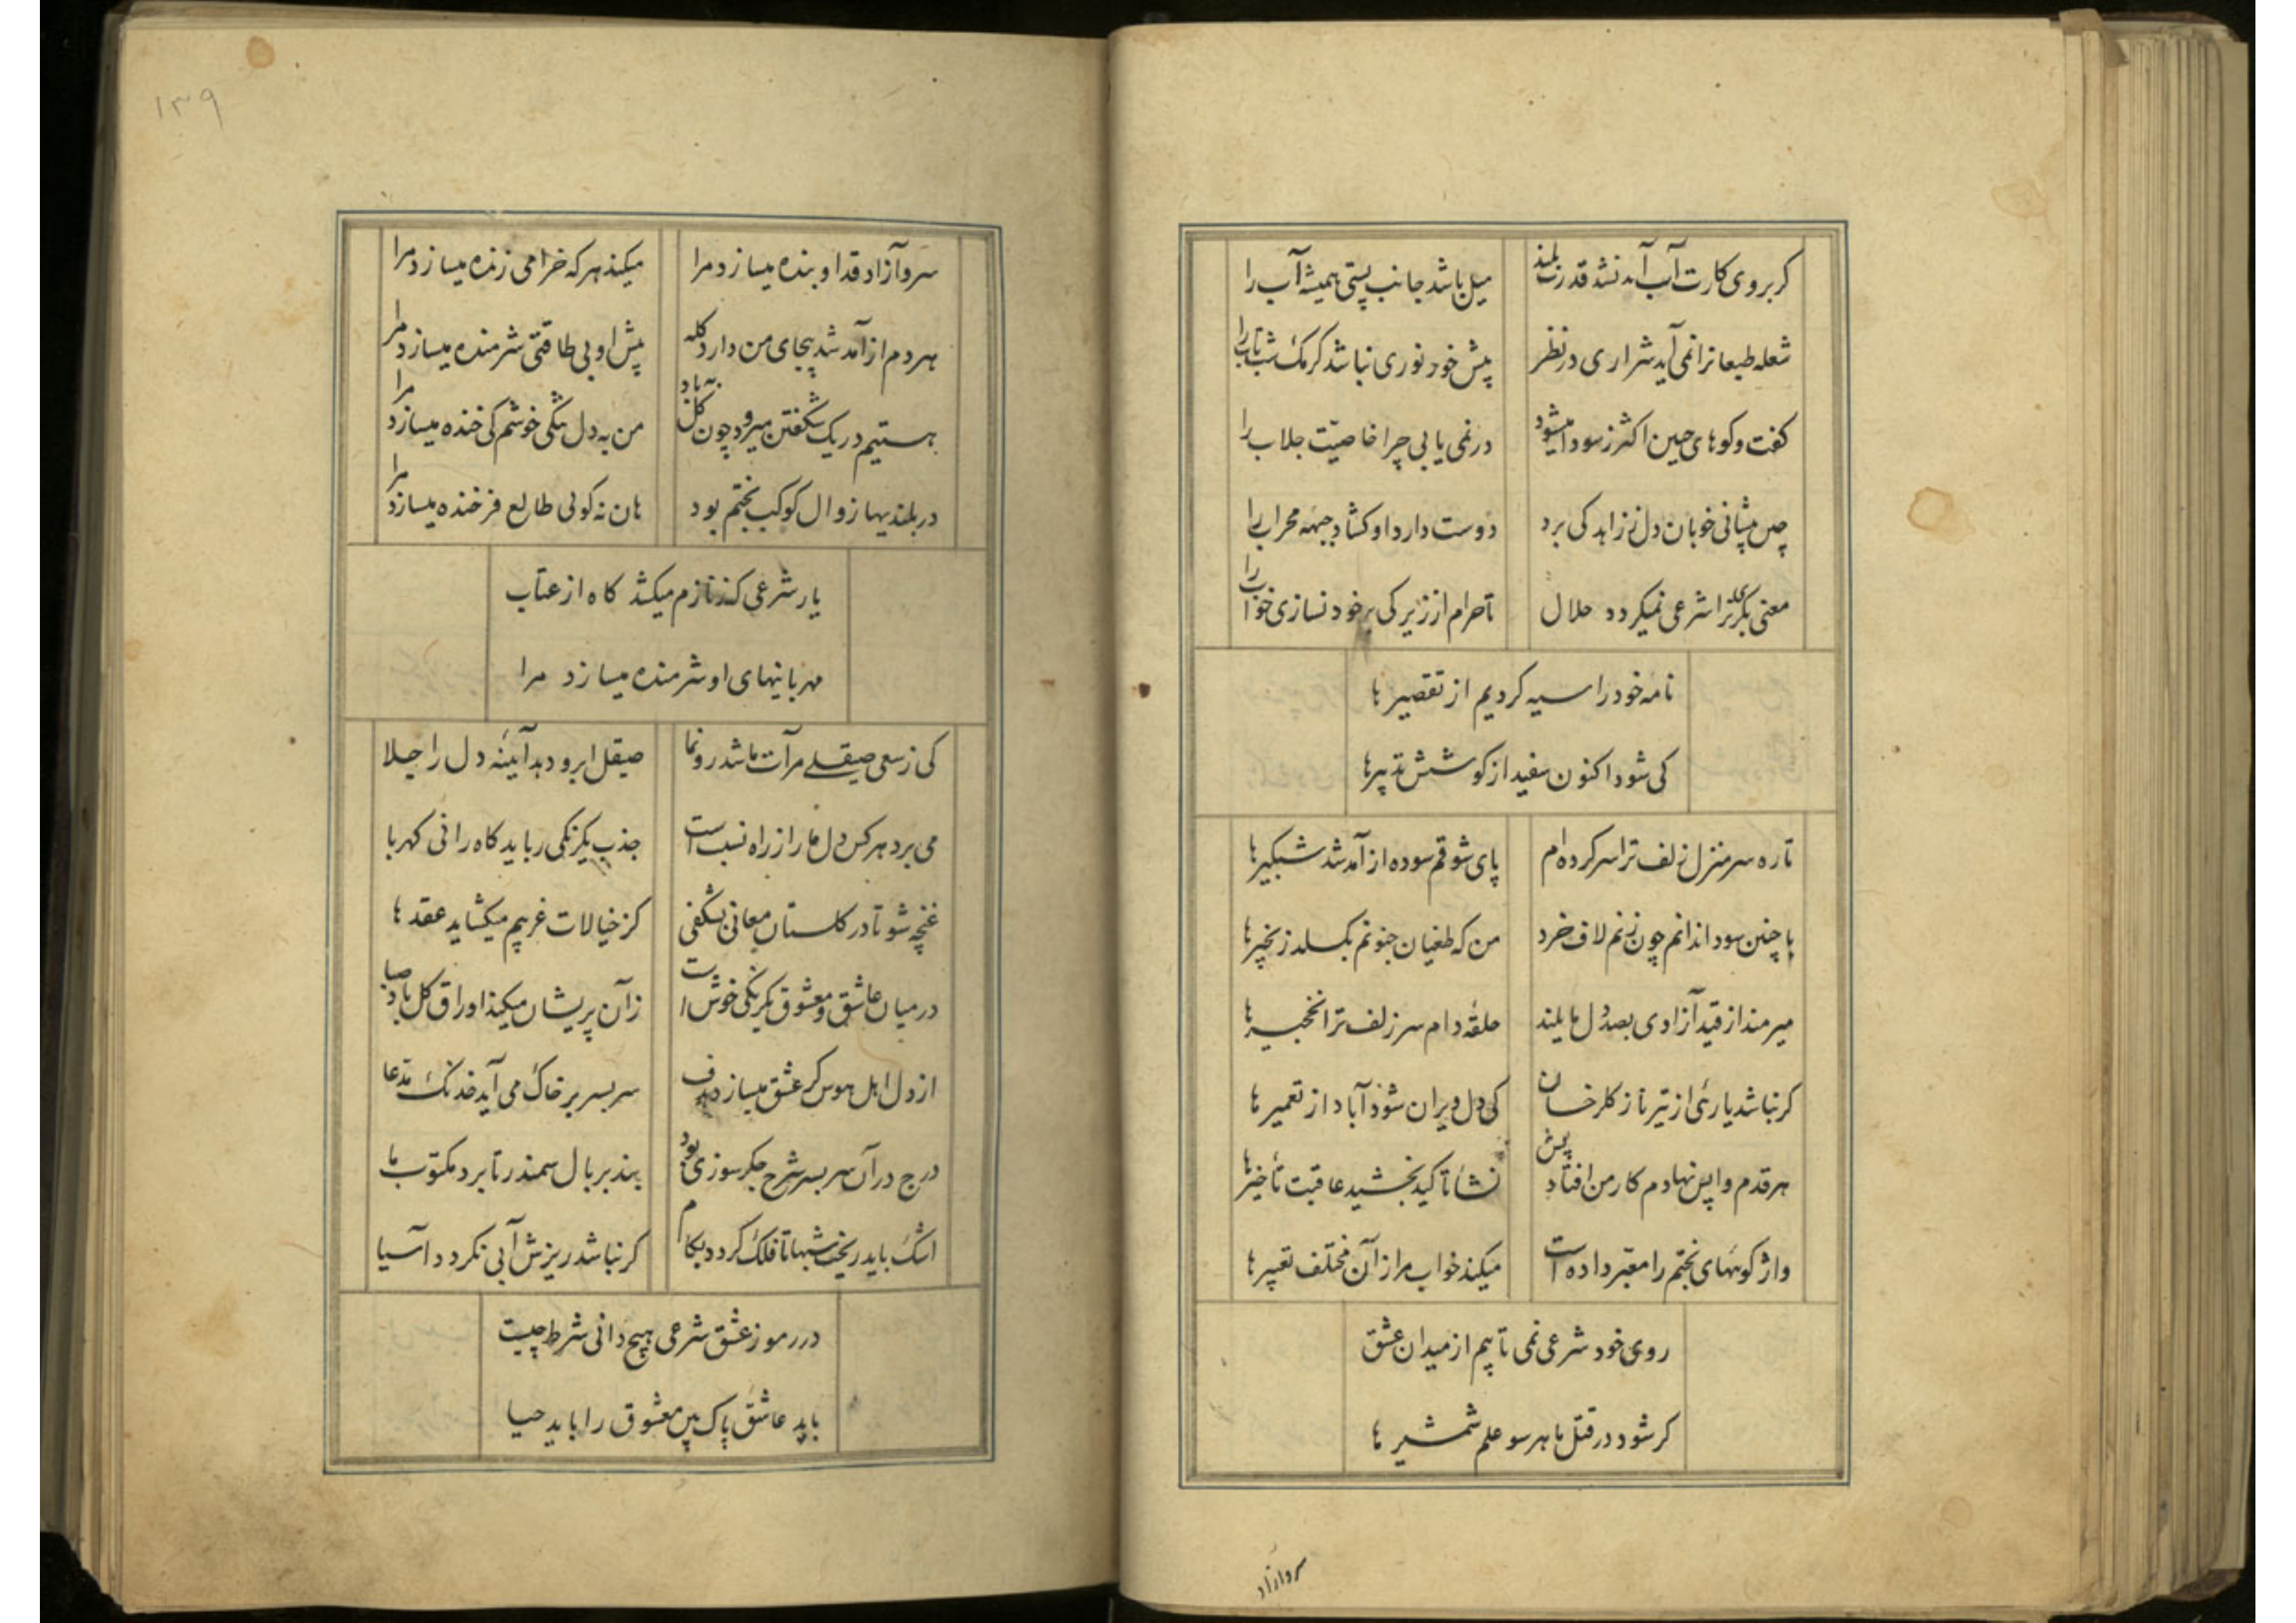 کر بروی کارت آب آمد نشد قدرت بلند میل باشد جانب پستی همیشه آب را
شعله طبعانرا نمی آید شراری در نظر پیش خود نوری نباشد کرمک شب تاب را
کفت و کوهای حین اکثر ز سودا میشود در نمی یابی چرا خاصیّت جلاب را
چین پیشانی خوبان دل ز زاهد کی برد دوست دارد او کشاد جبهه محراب را
معنی بکر ترا شرعی نمیکردد حلال تا حرام از زیرکی بر خود نسازی خواب را
نامه خود را سیه کردیم از تقصیر ها
کی شود اکنون سفید از کوشش تدبیرها
تا ره سر منزل زلف ترا سر کرده ام پای شوقم سوده از آمد شد شبکیر ها
با چنین سودا ندانم چون زنم لاف خرد من که طغیان جنونم بکسلد زنجیر ها
میرمند از قید آزادی بصد دل مایلند حلقه دام سر زلف ترا نخجیر ها
کر نباشد یاریی از تیر ناز کلرخان کی دل ویران شود آباد از تعمیر ها
هر قدم واپس نهادم کار من افتاد پیش نشأ تاکید بخشید عاقبت تأخیر ها
واژکونهای بختم را معبّر داده است میکند خواب مرا زآن مختلف تعبیر ها
روی خود شرعی نمی تابیم از میدان عشق
کر شود در قتل ما هر سو علم شمشیر ها
سرو آزاد
۱۳۹
سرو آزاد قد او بنده میسازد مرا میکند هر که خرامی زنده میسازد مرا
هر دم از آمد شد بیجای من دارد کله پیش او بی طاقتی شرمنده میسازد مرا
هستیم در یک شکفتن میرود چون کل بباد من به دل تنکی خوشم کی خنده میسازد مرا
در بلندیها زوال کوکب بختم بود هان نه کوئی طالع فرخنده میسازد مرا
یار شرعی کز نازم میکشد کاه از عتاب
مهربانیهای او شرمنده میسازد مرا
کی ز سعی صیقلی مرآت باشد رونما صیقل ابرو دهد آیینه دل را جلا
می برد هر کس دل ما را ز راه نسبت است جذب یکرنکی رباید کاه را نی کهربا
غنچه شو تا در کلستان معانی بشکفی کز خیالات غریبم میکشاید عقد ها
در میان عاشق و معشوق یکرنکی خوش است زآن پریشان میکند اوراق کل باد صبا
از دل اهل هوس کر عشق میسازد هدف سربسر بر خاک می آید خدنک مدّعا
درج در آن سربسر شرح جکر سوزی بود بند بر بال سمندر تا برد مکتوب ما
اشک باید ریخت شبها تا فلک کردد بکام کر نباشد ریزش آبی نکردد آسیا
در رموز عشق شرعی هیچ دانی شرط چیست
باید عاشق پاک بین معشوق را باید حیا